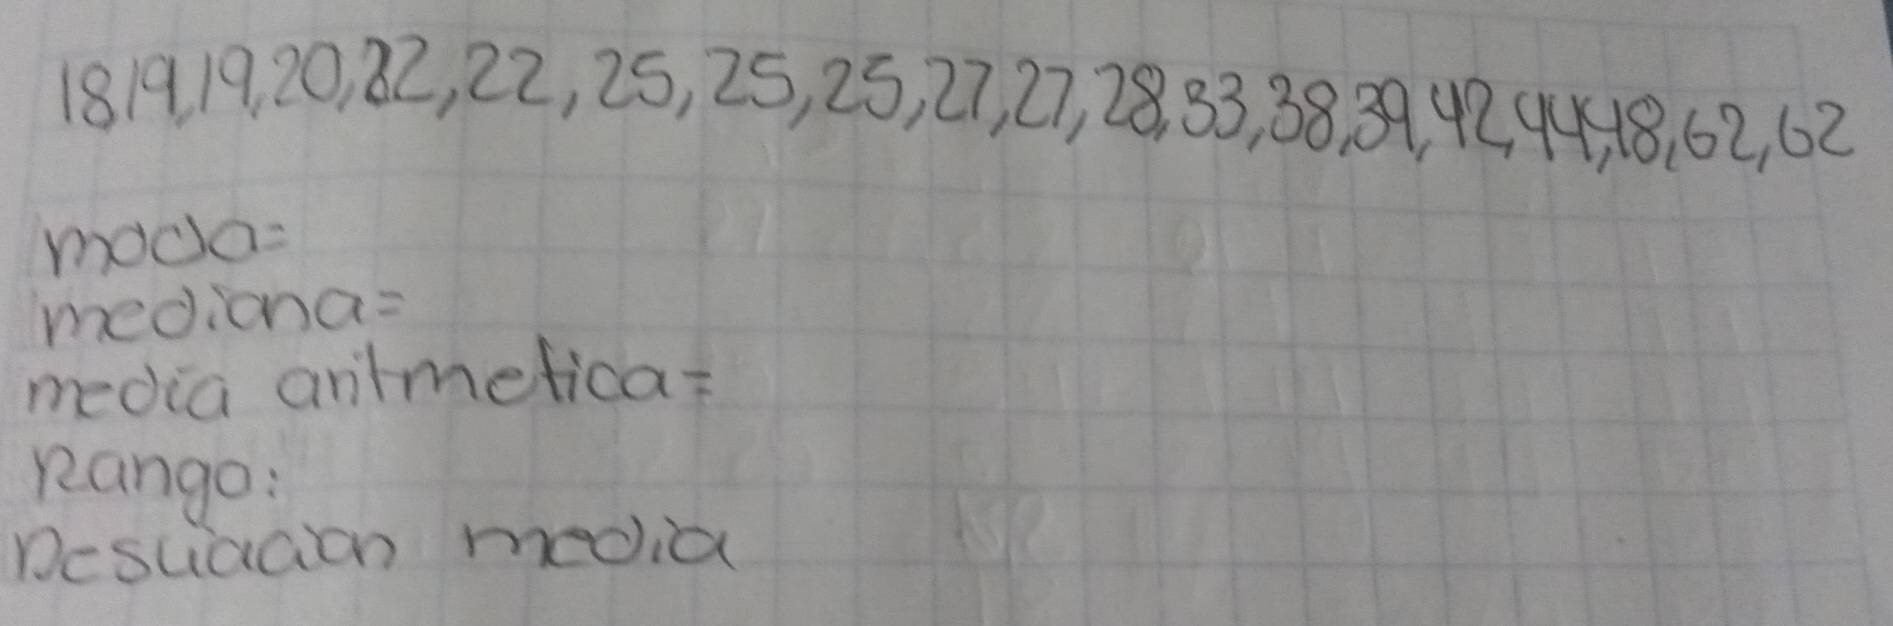 18,19,19,20,22,22,25,25,25,27,27,28,33,38,39,42,44,48,62,62
moda=
mediana=
media aritmetica=
Rango:
Desviacion media